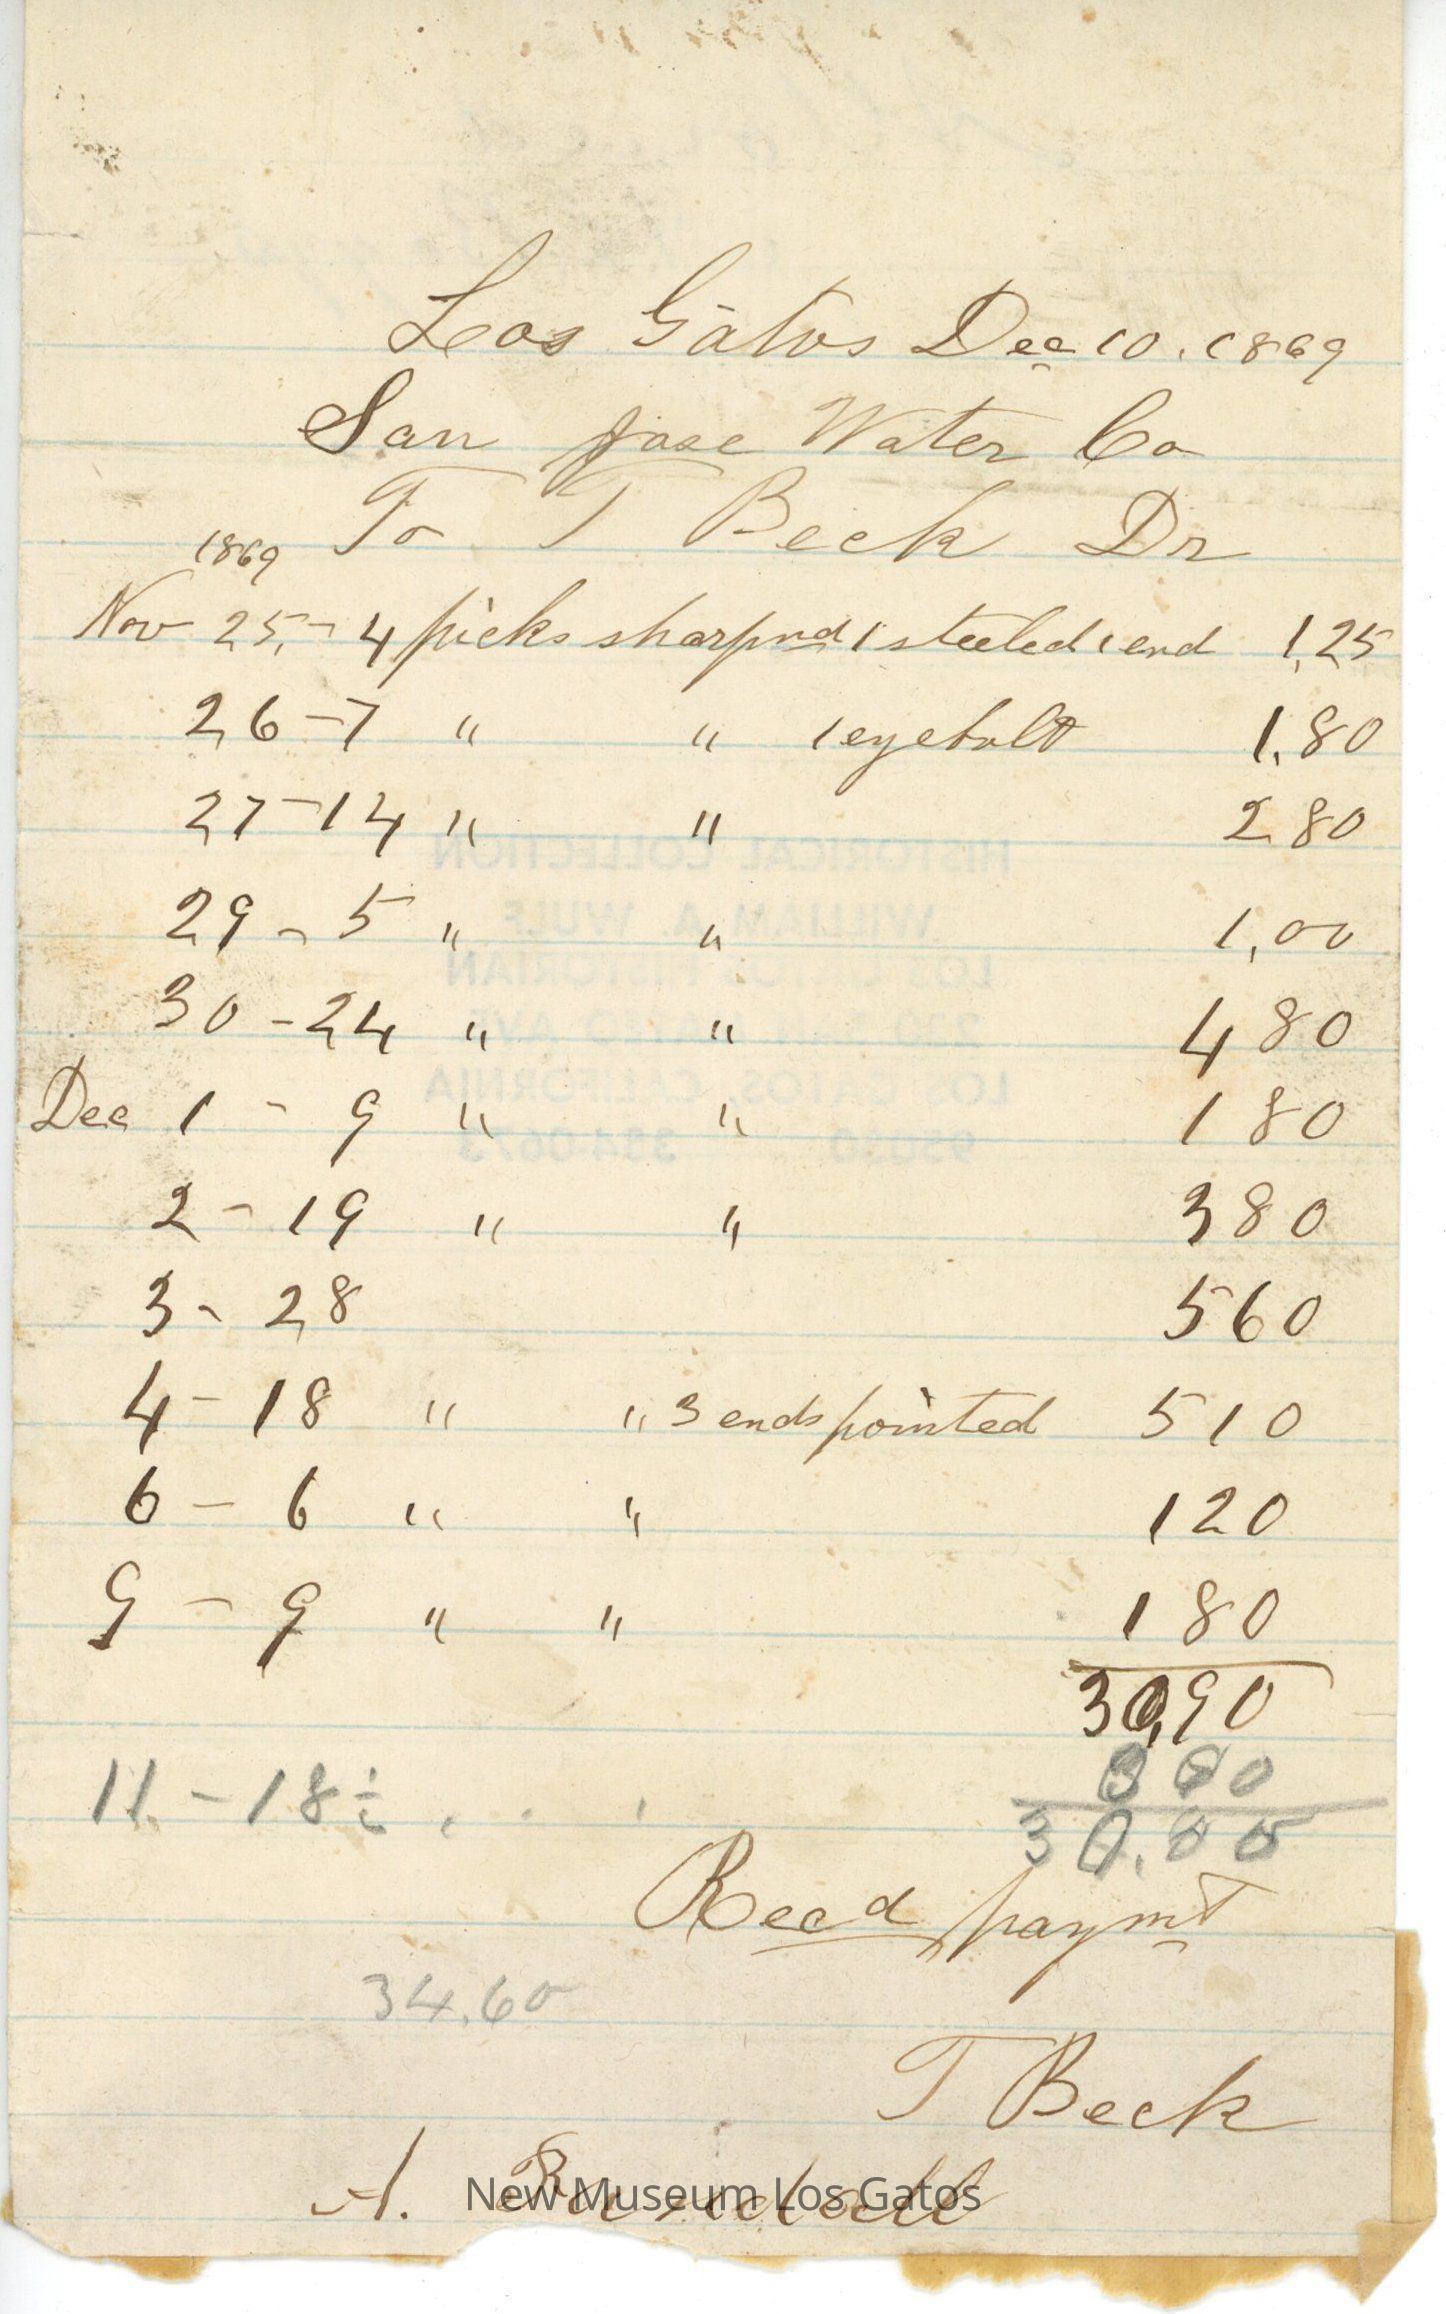 Los Gatos Dec 10. 1869
San Jose Water Co
To T Beck Dr
1869
Nov 25,- 4 picks sharpnd 1 steeled 1 end 1,25
26-7 " " 1 eyebolt 1.80
27-14 " " 2 80
29-5 " " 1,00
30-24 " " 4 80
Dec 1-9 " " 1 80
2-19 " " 3 80
3-28 5 60
4-18 " " 3 ends pointed 5 10
6-6 " " 1 20
9-9 " " 1 80
30,90
11-18
30.
Recd paymt
34.60
T Beck
A.
New Museum Los Gatos
HISTORICAL COLLECTION
WILLIAM A. WULF
LOS GATOS HISTORIAN
LOS GATOS, CALIFORNIA
95030 354-0673